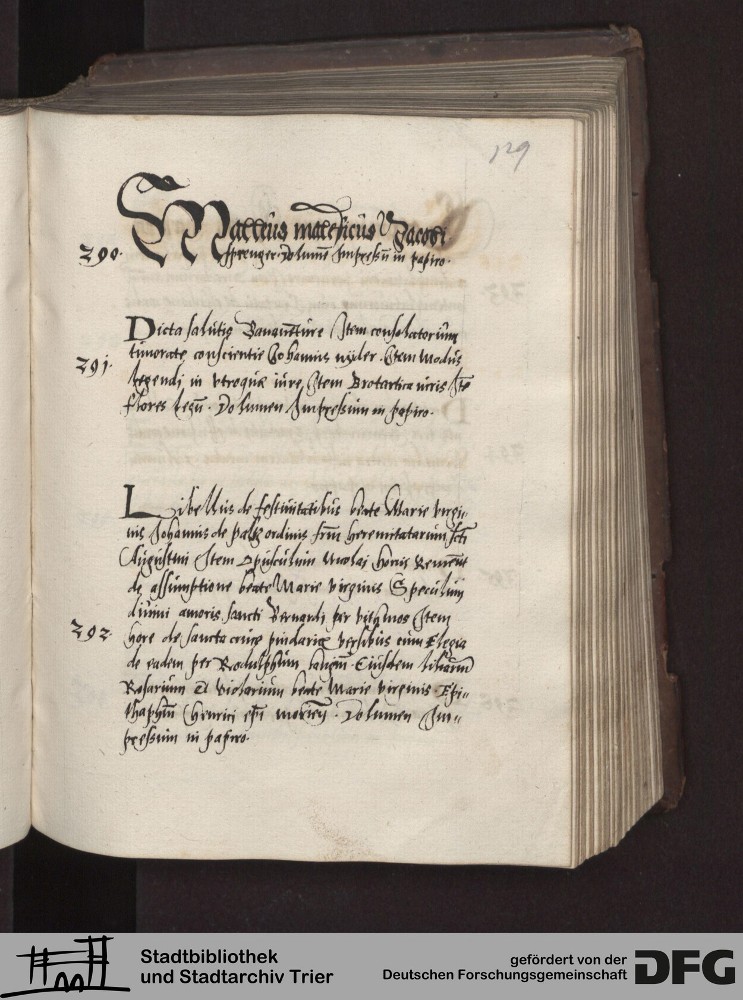 129
290. Malleus maleficus Jacobi
sprenger. Volumē Impressū in papiro.
291. Dicta salutis Bonauētúre Item consolatoriúm
timoratę conscientię Johannis nyder. Item Modús
legendi in vtroquę iúre, Item Brocardica iúris Itē
flores legū. Volúmen Impressúm in papiro.
Libellús de festiuitatibús beate Marie virgi„
nis Johannis de paltz ordinis frm̄ heremitatarúm scti
Aúgústini Item opúscúlúm Nicolai
de assúmptione beate Marie virginis Specúlúm
diuini amoris sancti Bernardi per Item
292. hore de sancta crúce pindaricę versibús cúm Elegia
de eadem per Rodúlphúm langiúm. Eiúsdem
Rosariúm Et violariúm beate Marie virginis. Epi„
thaphiū Henrici epi . Volúmen Im„
pressúm in papiro.
Stadtbibliothek
und Stadtarchiv Trier
gefördert von der
Deutschen Forschungsgemeinschaft
DFG